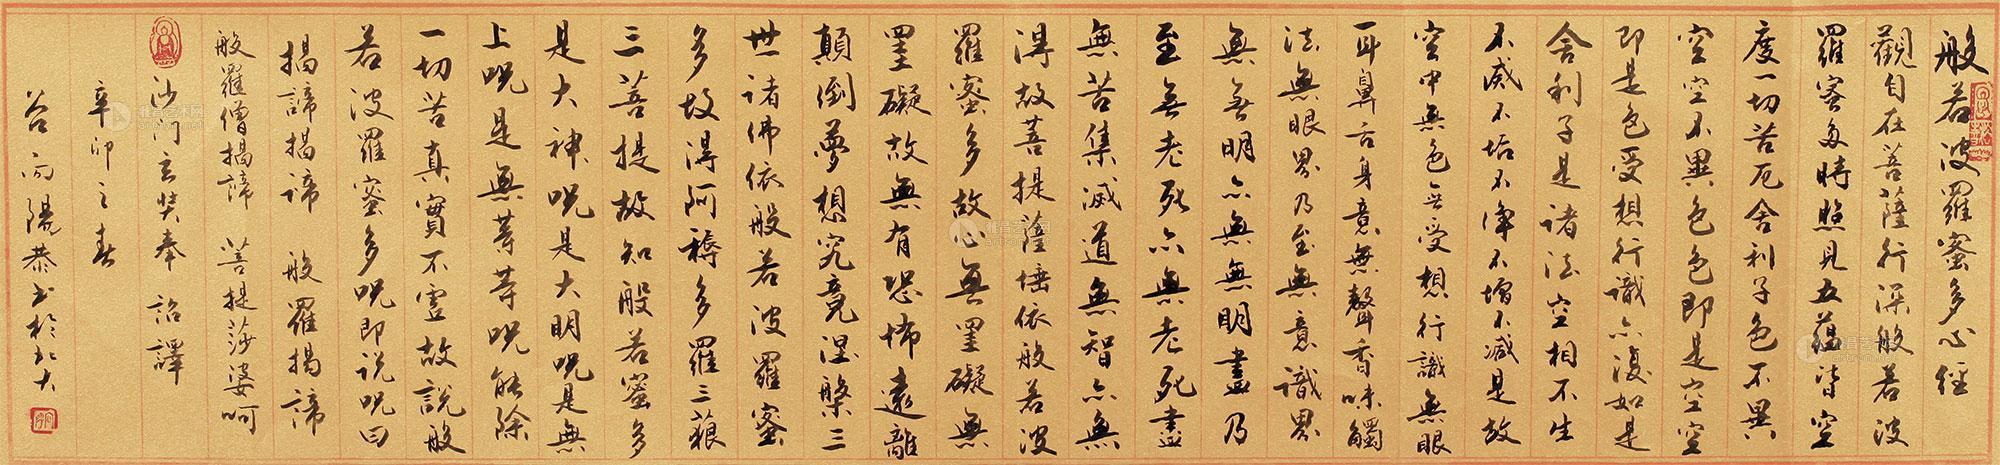 般若波羅蜜多心經
觀自在菩薩行深般若波
羅蜜多時照見五蘊皆空
度一切苦厄舍利子色不異
空空不異色色即是空空
即是色受想行識亦復如是
舍利子是諸法空相不生
不滅不垢不淨不增不減是故
空中無色無受想行識無眼
耳鼻舌身意無聲香味觸
法無眼界乃至無意識界
無無明亦無無明盡乃
至無老死亦無老死盡
無苦集滅道無智亦無
得故菩提薩埵依般若波
羅蜜多故心無罣礙無
罣礙故無有恐怖遠離
顛倒夢想究竟涅槃三
世諸佛依般若波羅蜜
多故得阿耨多羅三藐
三菩提故知般若蜜多
是大神呪是大明呪是無
上呪是無等等呪能除
一切苦真實不虛故說般
若波羅蜜多呪即說呪曰
揭諦揭諦 般羅揭諦
般羅僧揭諦 菩提莎婆呵
沙門玄奘奉 詔譯
辛卯之春
谷向陽恭书於北大